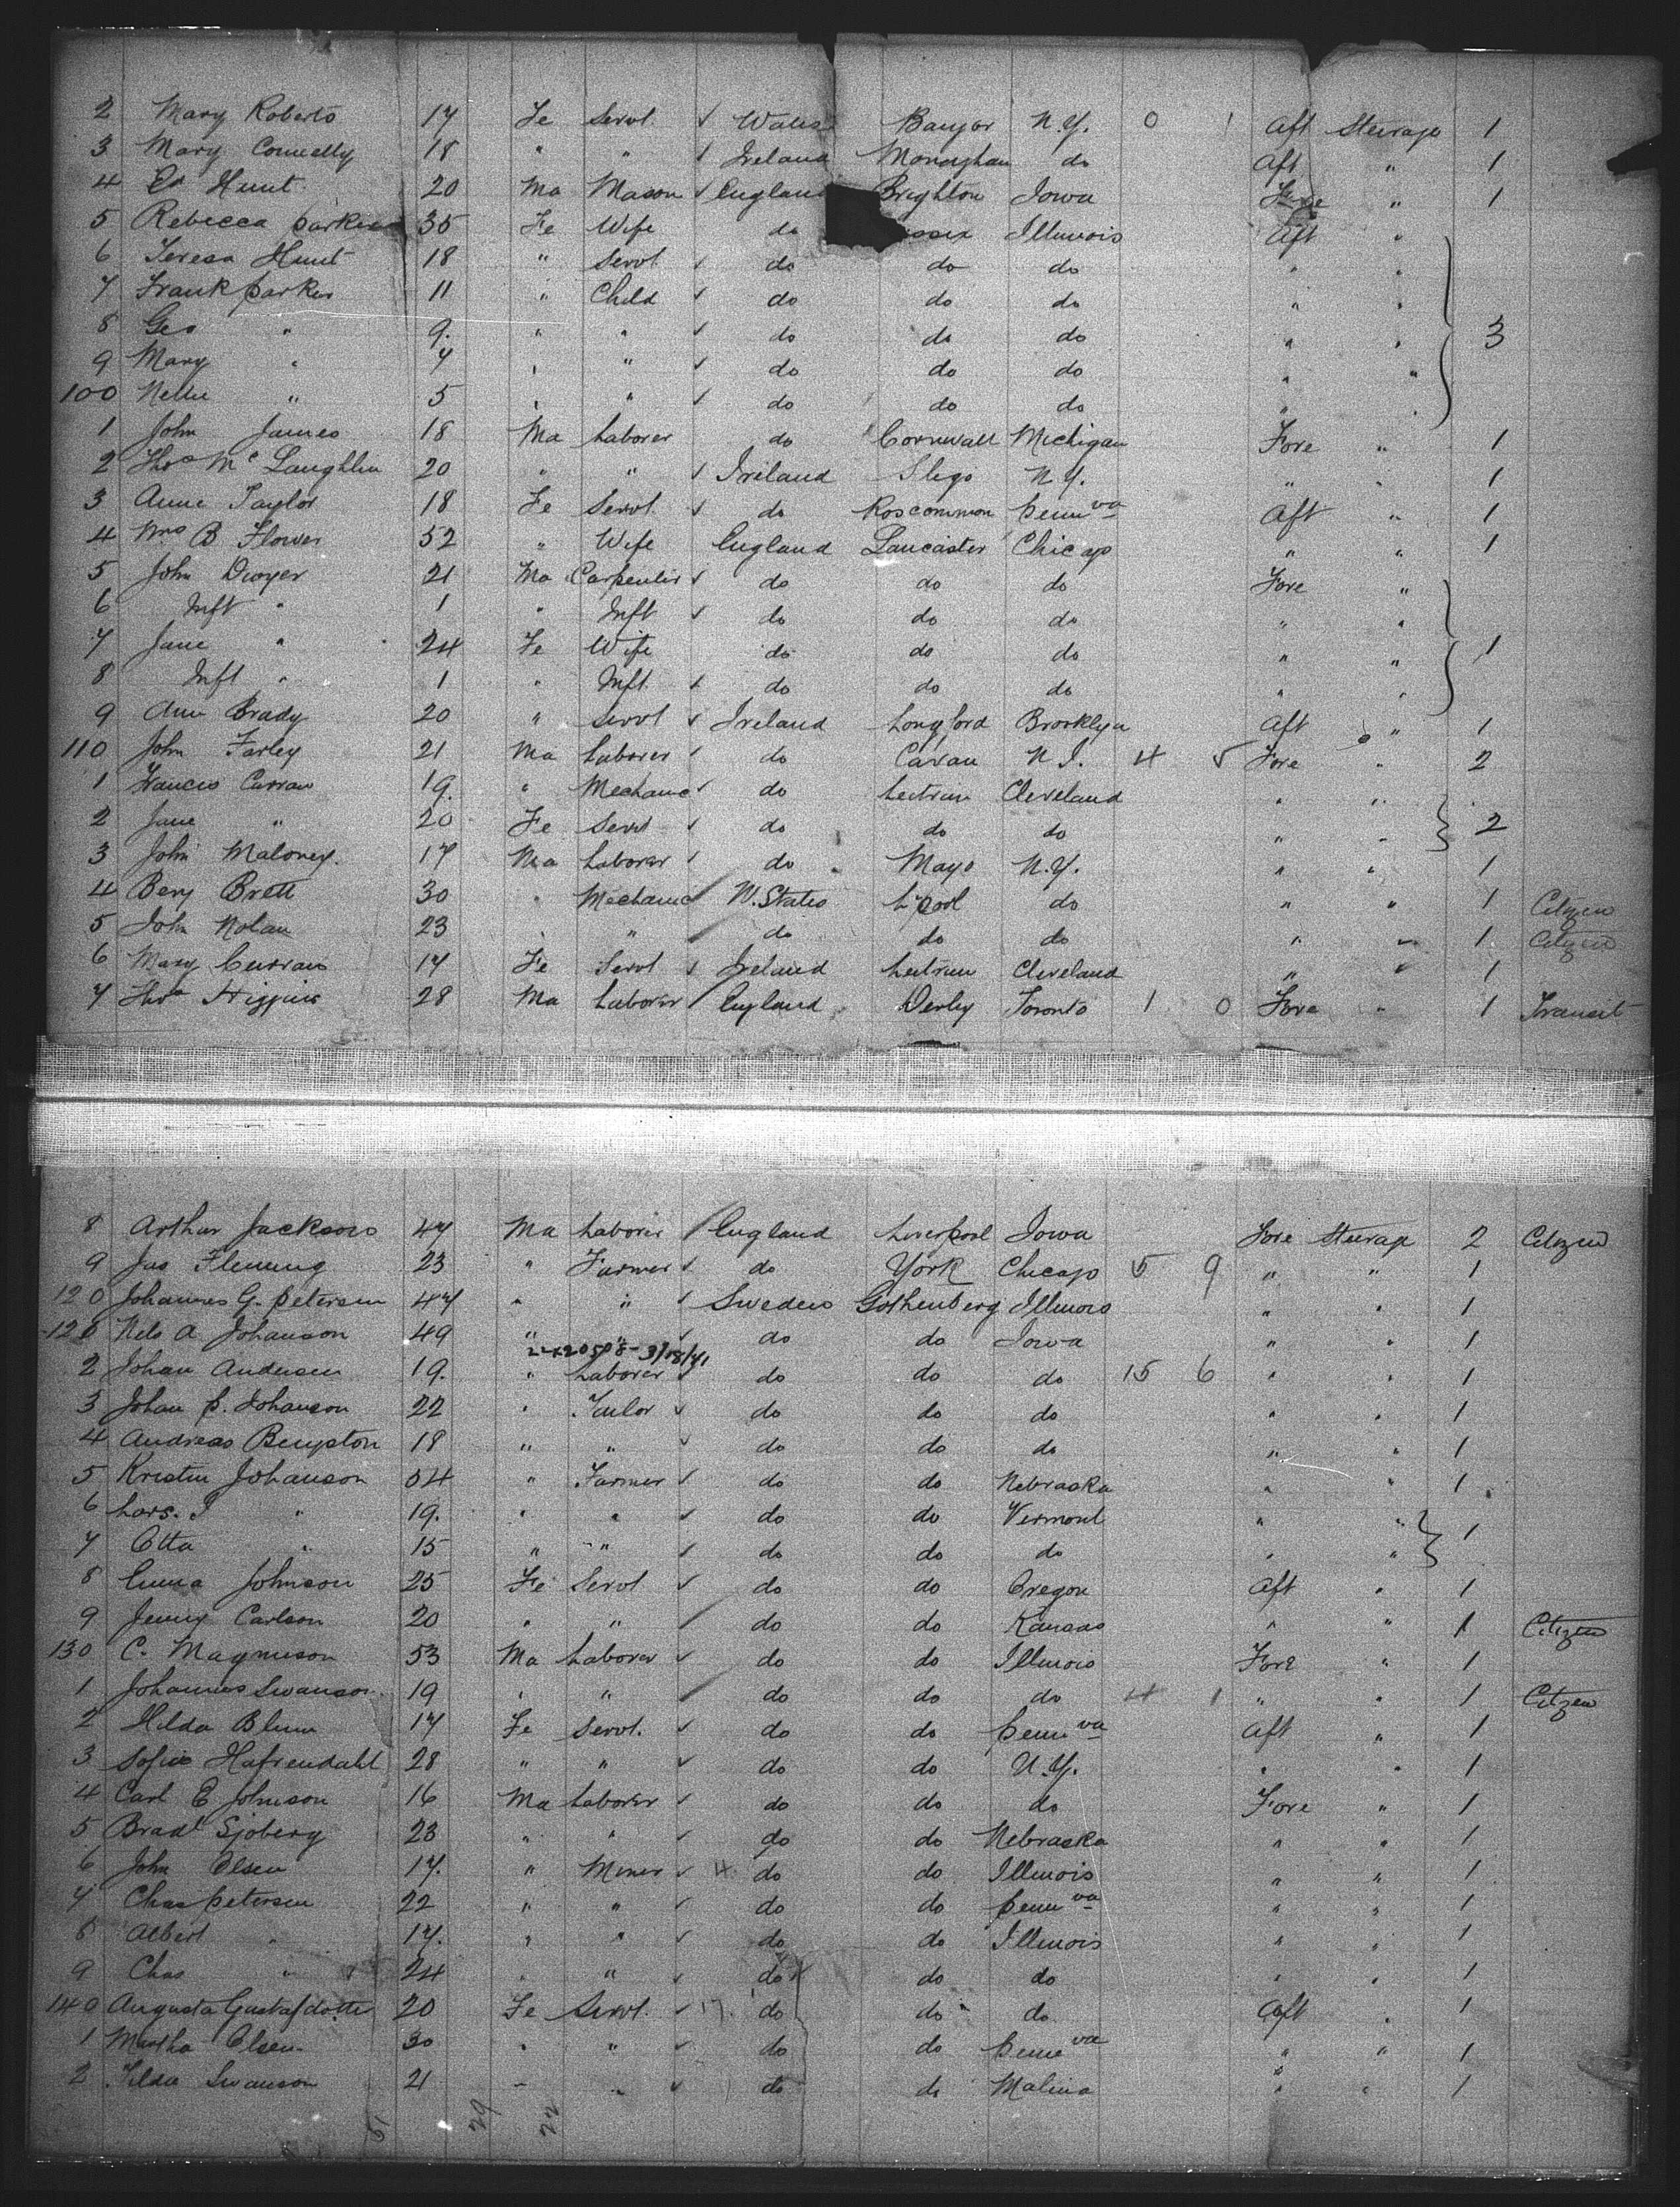 2 Mary Roberts 17 Fe Servt Wales Bangor N.Y. 0 1 Aft Steerage 1
3 Mary Connelly 18 " " Ireland Monaghan do Aft " 1
4 Ed Hunt 20 Ma Mason England Brighton Iowa Fore " 1
5 Rebecca Parker 35 Fe Wife do ssex Illinois Aft "
6 Teresa Hunt 18 " Servt do do do " "
7 Frank Parker 11 " Child do do do " "
8 Geo " 9. " " do do do " " 3
9 Mary " 7 " " do do do " "
100 Nellie " 5 " " do do do " "
1 John James 18 Ma Laborer do Cornwall Michigan Fore " 1
2 Thos McLaughlin 20 " " Ireland Sligo N.Y. " " 1
3 Anne Taylor 18 Fe Servt do Roscommon Pennva Aft " 1
4 Mrs B Flower 52 " Wife England Lancaster Chicago " " 1
5 John Dwyer 21 Ma Carpenter do do do Fore "
6 Inft " 1 " Inft do do do " "
7 Jane " 24 Fe Wife do do do " " 1
8 Inft " 1 " Inft do do do " "
9 Ann Brady 20 " Servt Ireland Longford Brooklyn Aft " 1
110 John Farley 21 Ma Laborer do Cavan N.J. 4 5 Fore " 2
1 Francis Curran 19. " Mechanic do Leitrim Cleveland " "
2 Jane " 20 Fe Servt do do do " " 2
3 John Maloney. 17 Ma Laborer do Mayo N.Y. " " 1
4 Benj Brett 30 " Mechanic U. States L'pool do " " 1 Citizen
5 John Nolan 23 " " do do do " " 1 Citizen
6 Mary Curran 17 Fe Servt Ireland Leitrim Cleveland " " 1
7 Thos Higgins 28 Ma Laborer England Derby Toronto 1 0 Fore " 1 Transit
8 Arthur Jackson 47 Ma Laborer England Liverpool Iowa Fore Steerage 2 Citizen
9 Jas Fleming 23 " Farmer do York Chicago 5 9 " " 1
120 Johannes G. Petersen 47 " " Sweden Gothenberg Illinois " " 1
121 Nels A Johanson 49 " " do do Iowa " " 1
2 Johan Andersen 19. " Laborer do do do 15 6 " " 1
3 Johan P. Johanson 22 " Tailor do do do " " 1
4 Andreas Bengston 18 " " do do do " " 1
5 Kristin Johanson 54 " Farmer do do Nebraska " " 1
6 Lars. J " 19. " " do do Vermont " " 1
7 Otta " 15 " " do do do " "
8 Emma Johnson 25 Fe Servt do do Oregon Aft " 1
9 Jenny Carlson 20 " " do do Kansas " " 1 Citizen
130 C. Magnuson 53 Ma Laborer do do Illinois Fore " 1
1 Johannes Swanson 19 " " do do do 4 1 " " 1 Citizen
2 Hilda Blum 17 Fe Servt. do do Pennva Aft " 1
3 Sofie Hafrendahl 28 " " do do N.Y. " " 1
4 Carl E Johnson 16 Ma Laborer do do do Fore " 1
5 Bradt Sjoberg 23 " " do do Nebraska " " 1
6 John Olsen 17. " Miner do do Illinois " " 1
7 Chas Petersen 22 " " do do Pennva " " 1
8 Albert " 17. " " do do Illinois " " 1
9 Chas " 24 " " do do do " " 1
140 Augusta Gustafdotter 20 Fe Servt. do do do Aft " 1
1 Martha Olsen 30 " " do do Pennva " " 1
2 Tilda Swanson 21 " " do do Malina " " 1
29 22